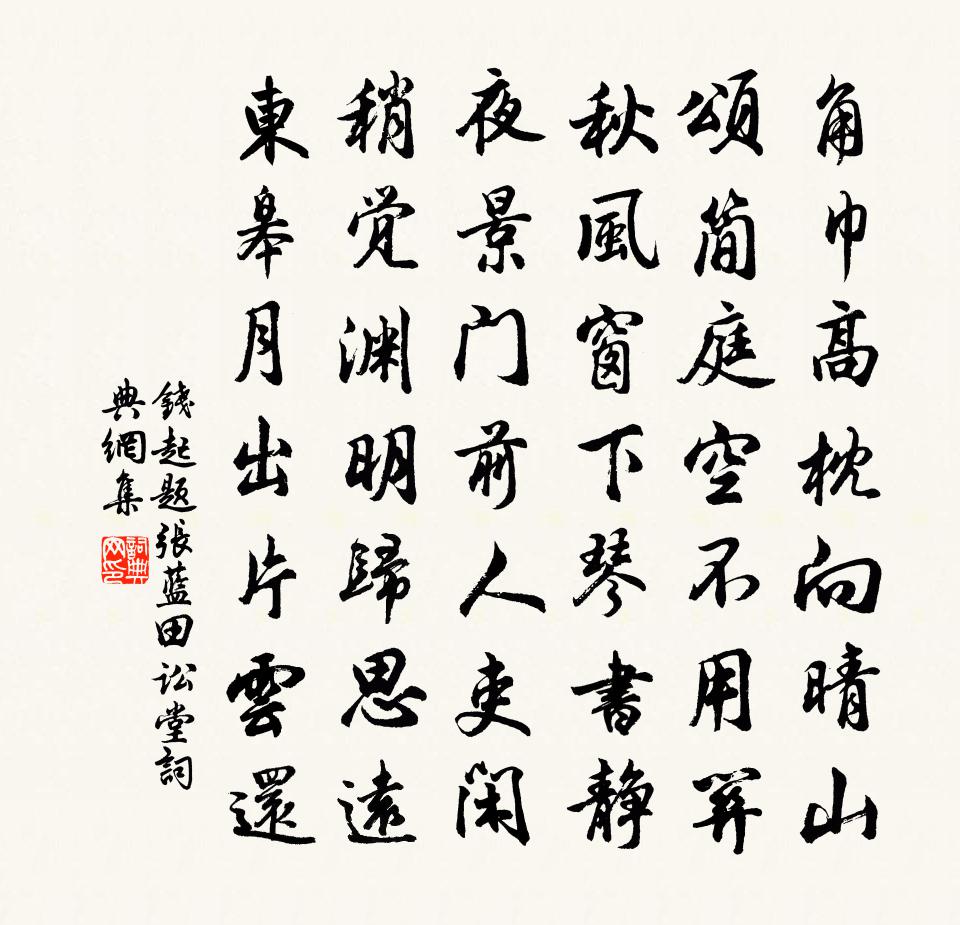 角巾高枕向晴山
頌簡庭空不用關
秋風窗下琴書静
夜景门前人吏闲
稍覚渊明歸思遠
東皋月出片雲還
錢起题張藍田訟堂詞
典網集
詞典
网印